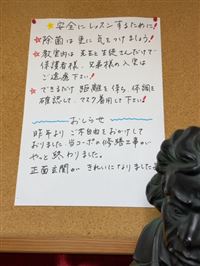 ☆安全にレッスンするために!
☆除菌は更に気をつけましょう!
☆教室内は先生と生徒さんだけで
保護者様、兄弟様の入室は
ご遠慮下さい!
☆できるだけ距離を保ち、体調を
確認して、マスク着用して下さい!
おしらせ
昨年より ご不自由をおかけして
おりました、当コーポの修路工事がい
やっと 終わりました。
正面玄関が きれいになりました